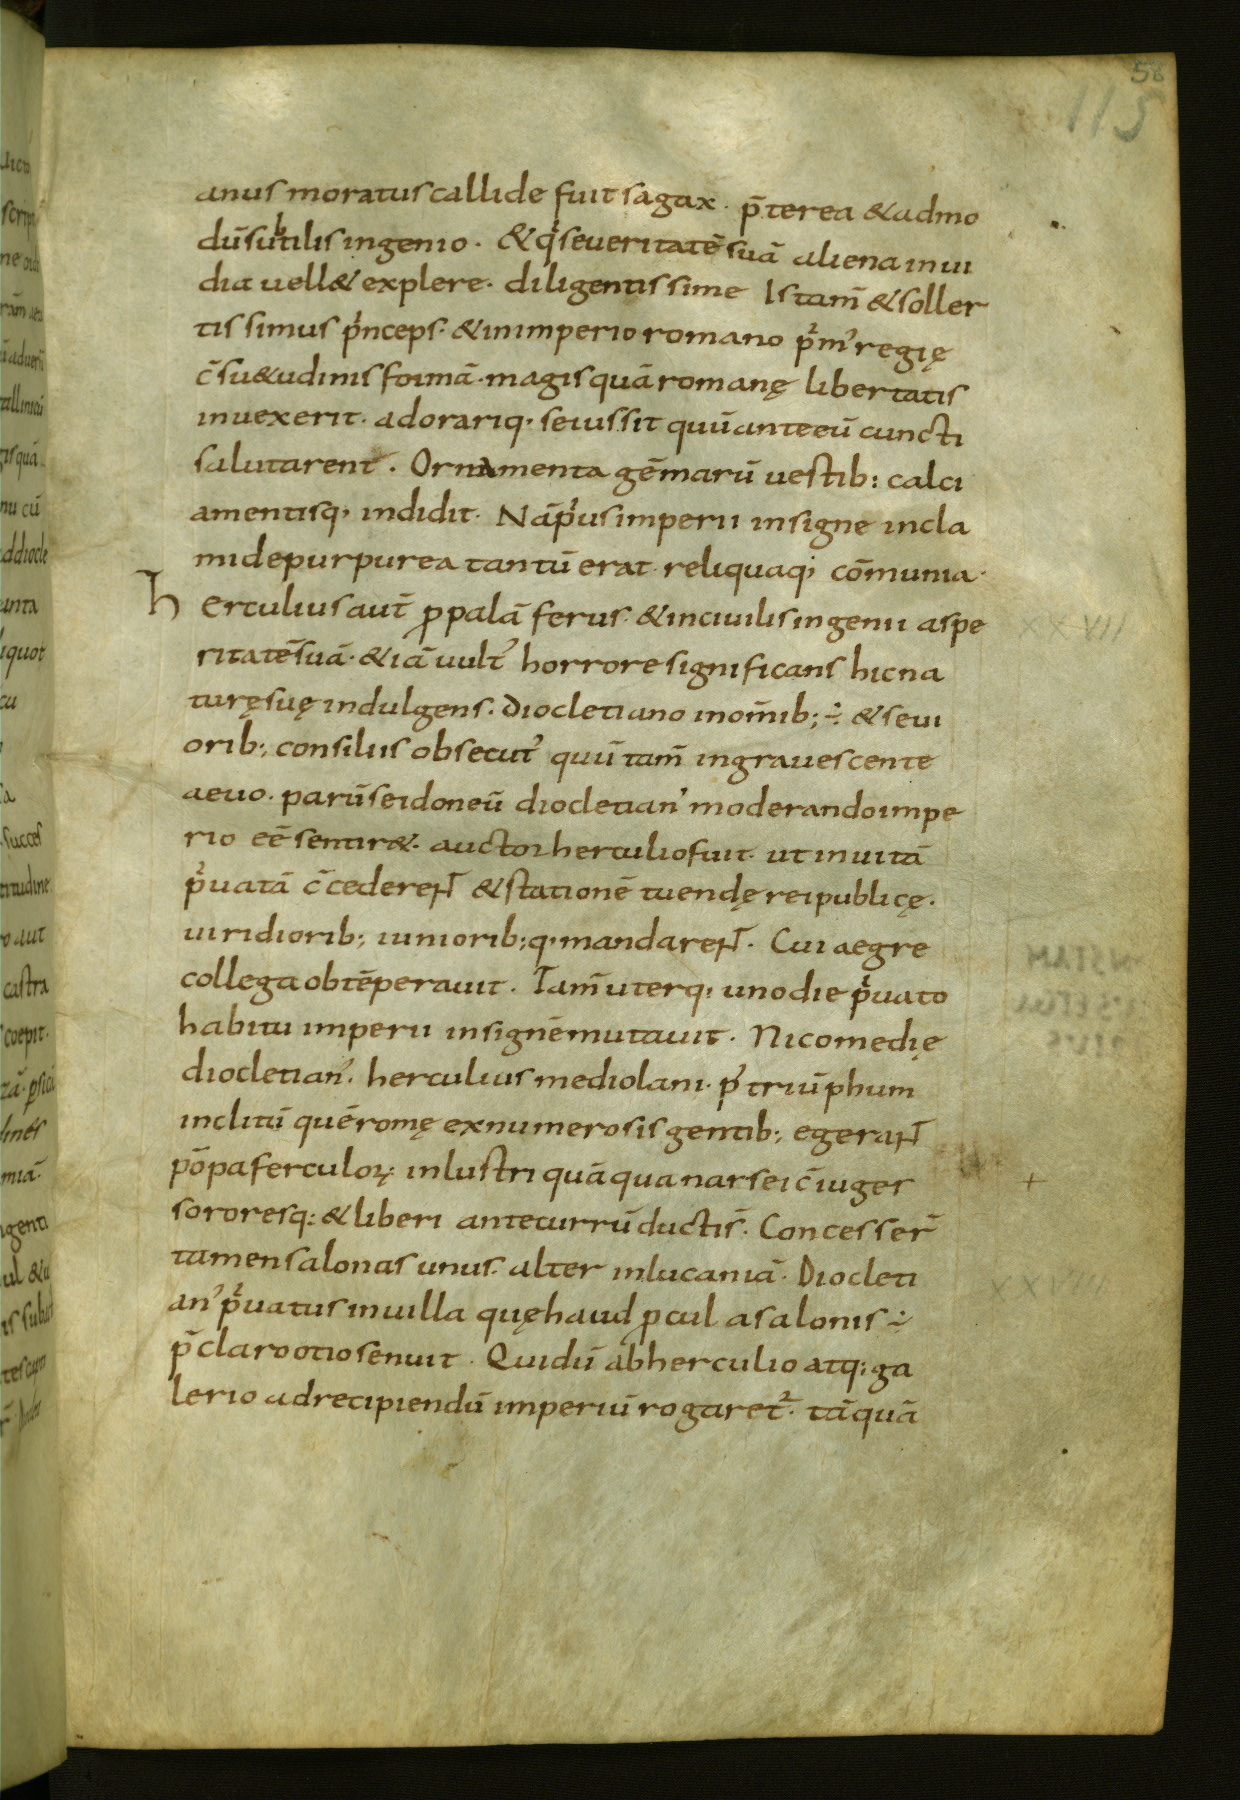 58
115
anus moratus callide fuit sagax · p̄terea & admo
dū subtilis ingenio · & q' seueritatē suā aliena inui
dia uell& explere · diligentissime Istam̄ & soller
tissimus p'nceps · & in imperio romano p'm' regię
c̄su&udinis formā · magis quā romanę libertatis
inuexerit · adorariq; se iussit quū ante eū cuncti
salutarent · Ornamenta gēmarū uestib: calci
amentisq; indidit · Nā p'us imperii insigne in cla
mide purpurea tantū erat · reliquaq; cōmunia ·
herculius aut̄ ppalā ferus · & inciuilis ingenii aspe
ritatē suā · & iā uult' horrore significans hic na
turę suę indulgens · Diocletiano in om̄ib; ÷ & seui
orib; consiliis obsecut' quū tam̄ ingrauescente
aeuo · parū se idoneū diocletian' moderando impe
rio eē sentir& · auctor herculio fuit · ut in uitā
p'uatā c̄cederent & stationē tuendę reipublicę ·
uiridiorib; iuniorib; q; mandarent · Cui aegre
collega obtēperauit · Tam̄ uterq; uno die p'uato
habitu imperii insignē mutauit · Nicomedię
diocletian' · herculius mediolani · p' triūphum
inclitū quē romę ex numerosis gentib; egerant
pōpa ferculoꝝ inlustri quā qua narsei c̄iuger
sororesq: & liberi ante currū ducti s̄ · Concesser̄
tamen salonas unus · alter in lucaniā · Diocleti
an' p'uatus in uilla quę haud pcul a salonis ÷
p̄claro otio senuit · Qui dū ab herculio atq; ga
lerio ad recipiendū imperiū rogaret² · tā quā